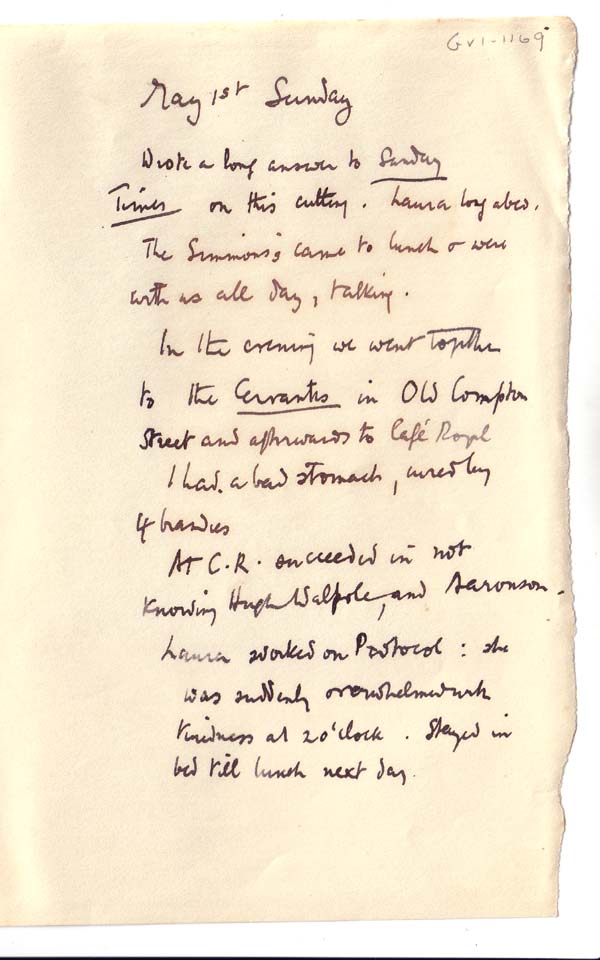 GVI-1169
May 1st Sunday
Wrote a long answer to Sunday
Times on this cutting. Laura long abed.
The Simmons's came to lunch & were
with us all day, talking.
In the evening we went together
to the Cervantes in Old Compton
Street and afterwards to Café Royl
I had a bad stomach, cured by
4 brandies
At C.R. succeeded in not
knowing Hugh Walpole, and Aaronson.
Laura worked on Protocol: she
was suddenly overwhelmed with
tiredness at 2 o'clock. Stayed in
bed till lunch next day.